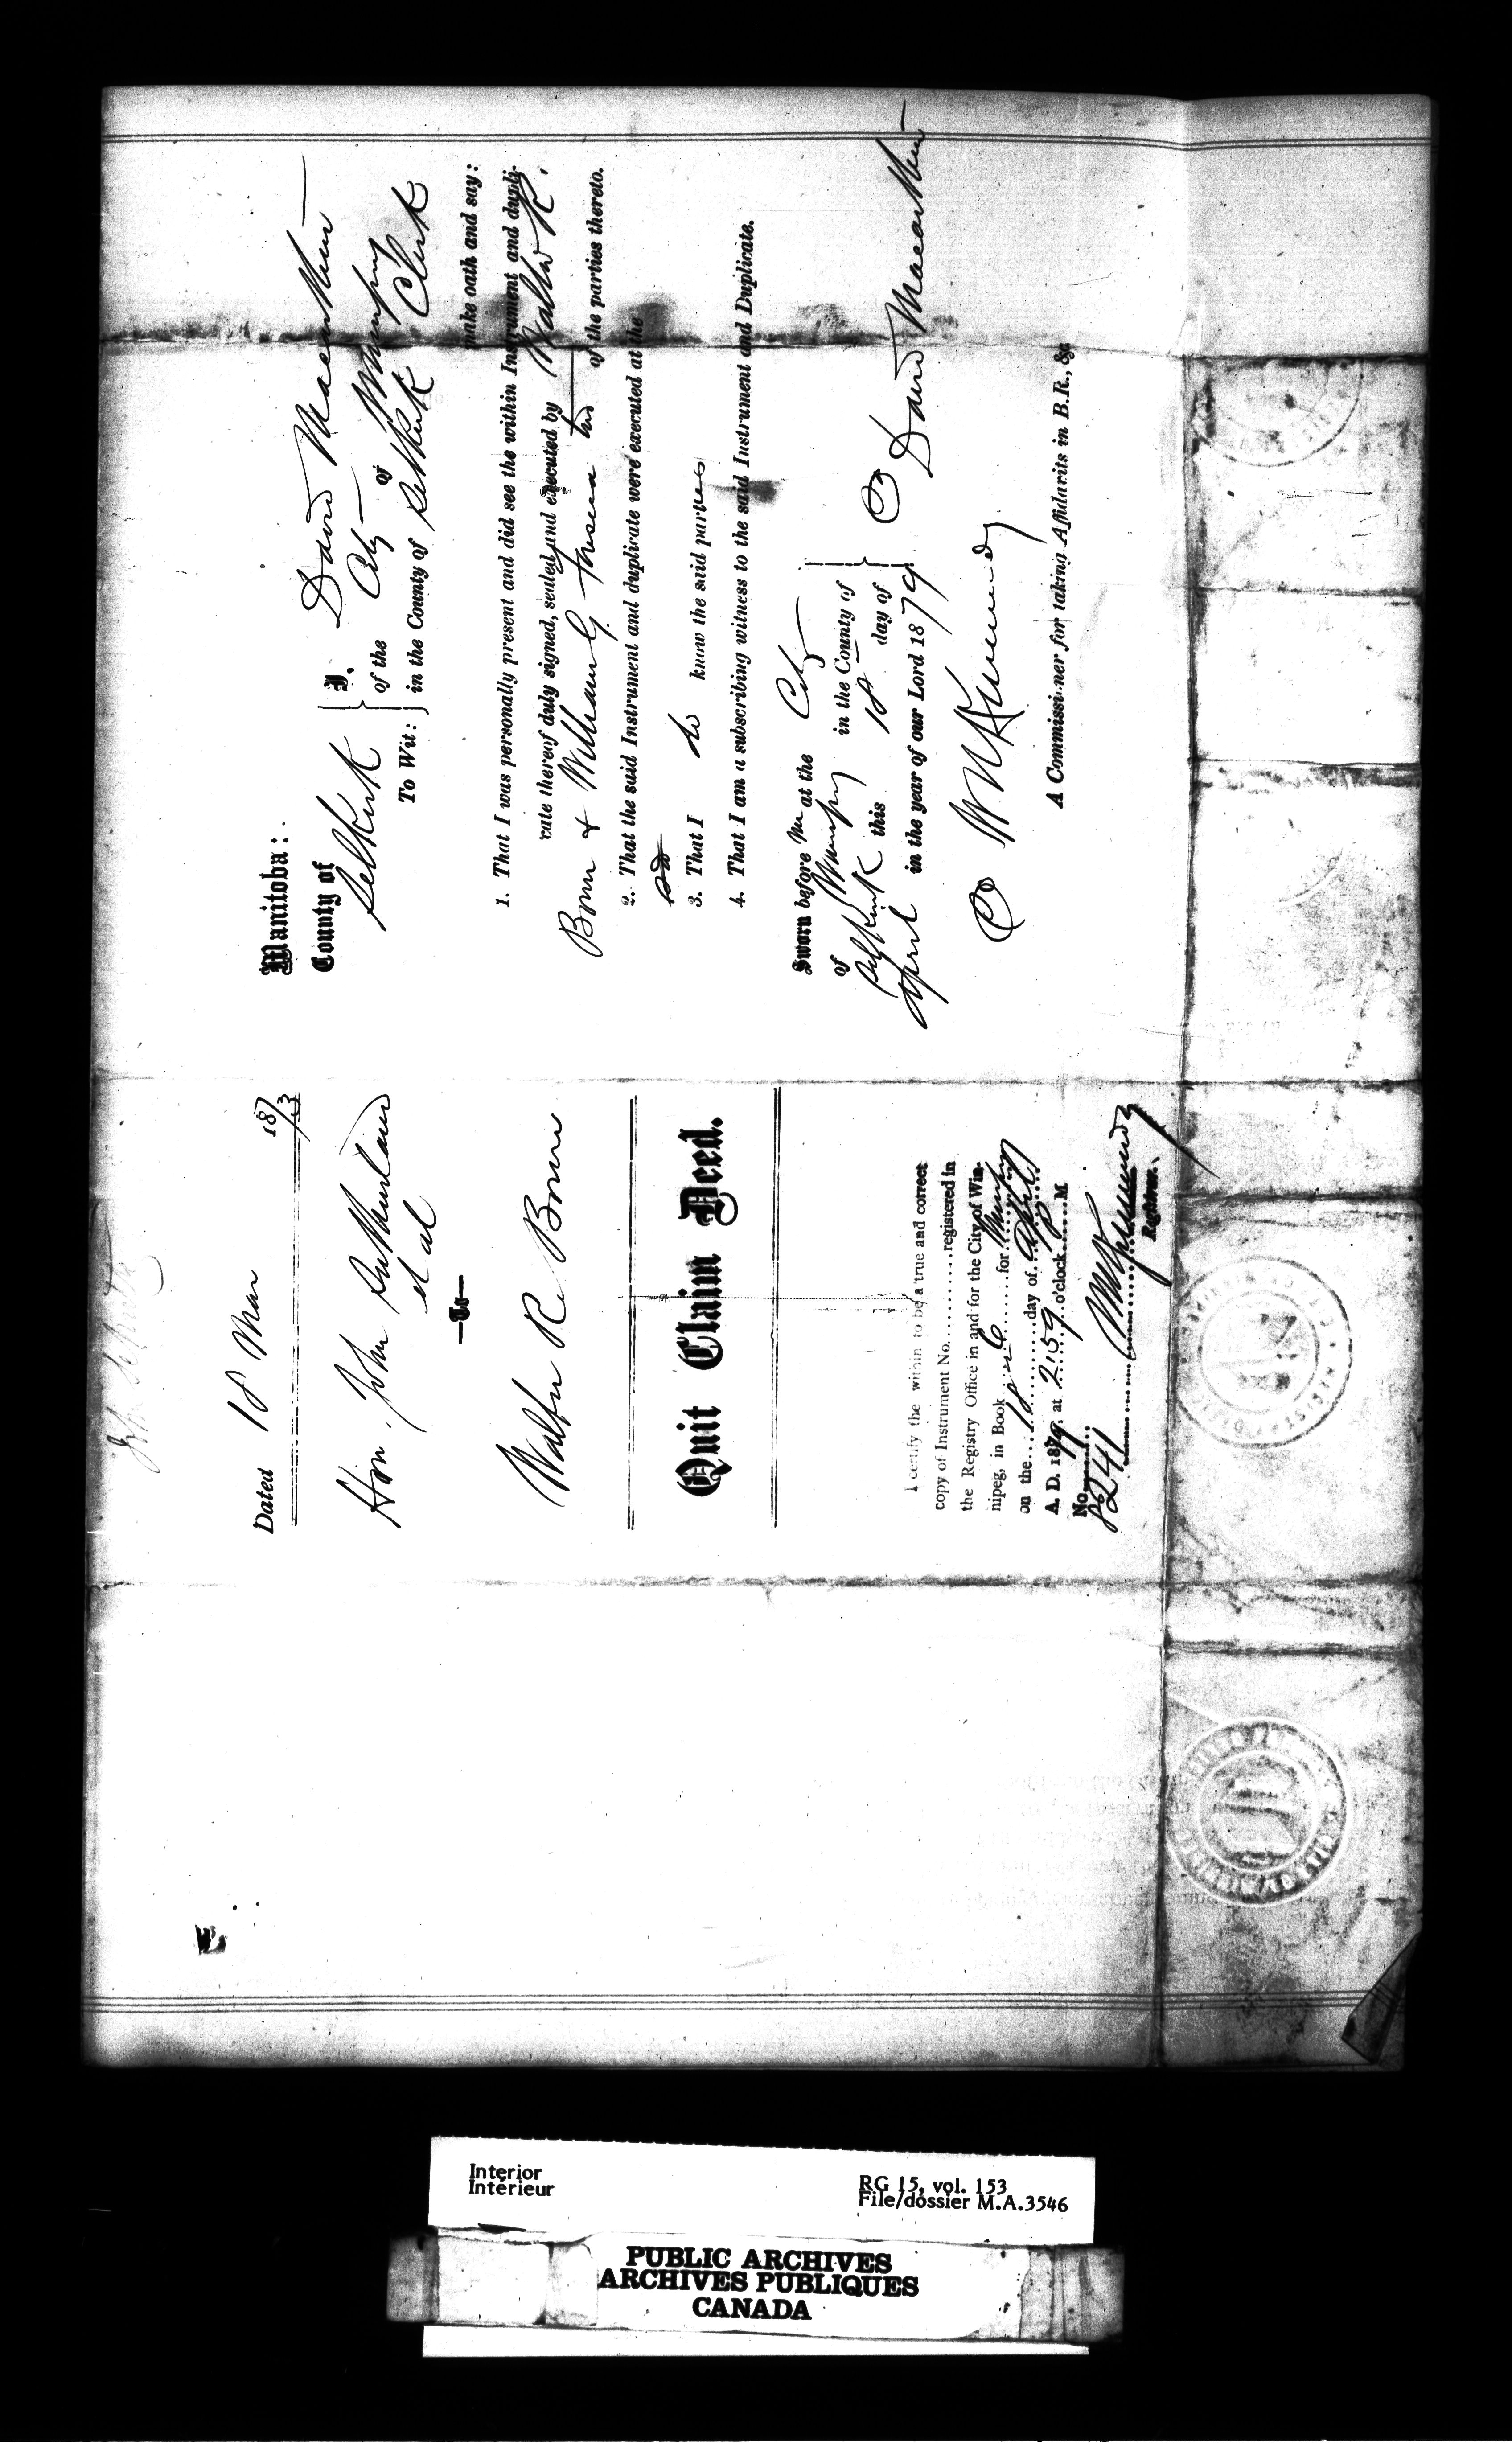 Manitoba:
County of
Selkirk
To Wit:
I, David Macarthur
of the City of Winnipeg
in the County of Selkirk Clerk
make oath and say:
1. That I was personally present and did see the within Instrument and dupli-
cate thereof duly signed, sealed and executed by Walter R.
Bown & William G Fonseca two of the parties thereto.
2. That the said Instrument and duplicate were executed at the
3. That I do know the said parties
4. That I am a subscribing witness to the said Instrument and Duplicate.
Sworn before me at the City
of Winnipeg in the County of
Selkirk this 18 day of
April in the year of our Lord 1879
David Macarthur
A Commissioner for taking Affidavits in B.R., &c
Dated 18 Mar 1873
Hon. John Sutherland
et al
—To—
Walter R Bown
Quit Claim Deed.
I certify the within to be a true and correct
copy of Instrument No. registered in
the Registry Office in and for the City of Win-
nipeg, in Book for Winnipeg
on the 18 day of April
A. D. 1879, at 2.59 o'clock P M
No.
8241
Registrar.
Interior
Intérieur
RG 15, vol. 153
File/dossier M.A.3546
PUBLIC ARCHIVES
ARCHIVES PUBLIQUES
CANADA